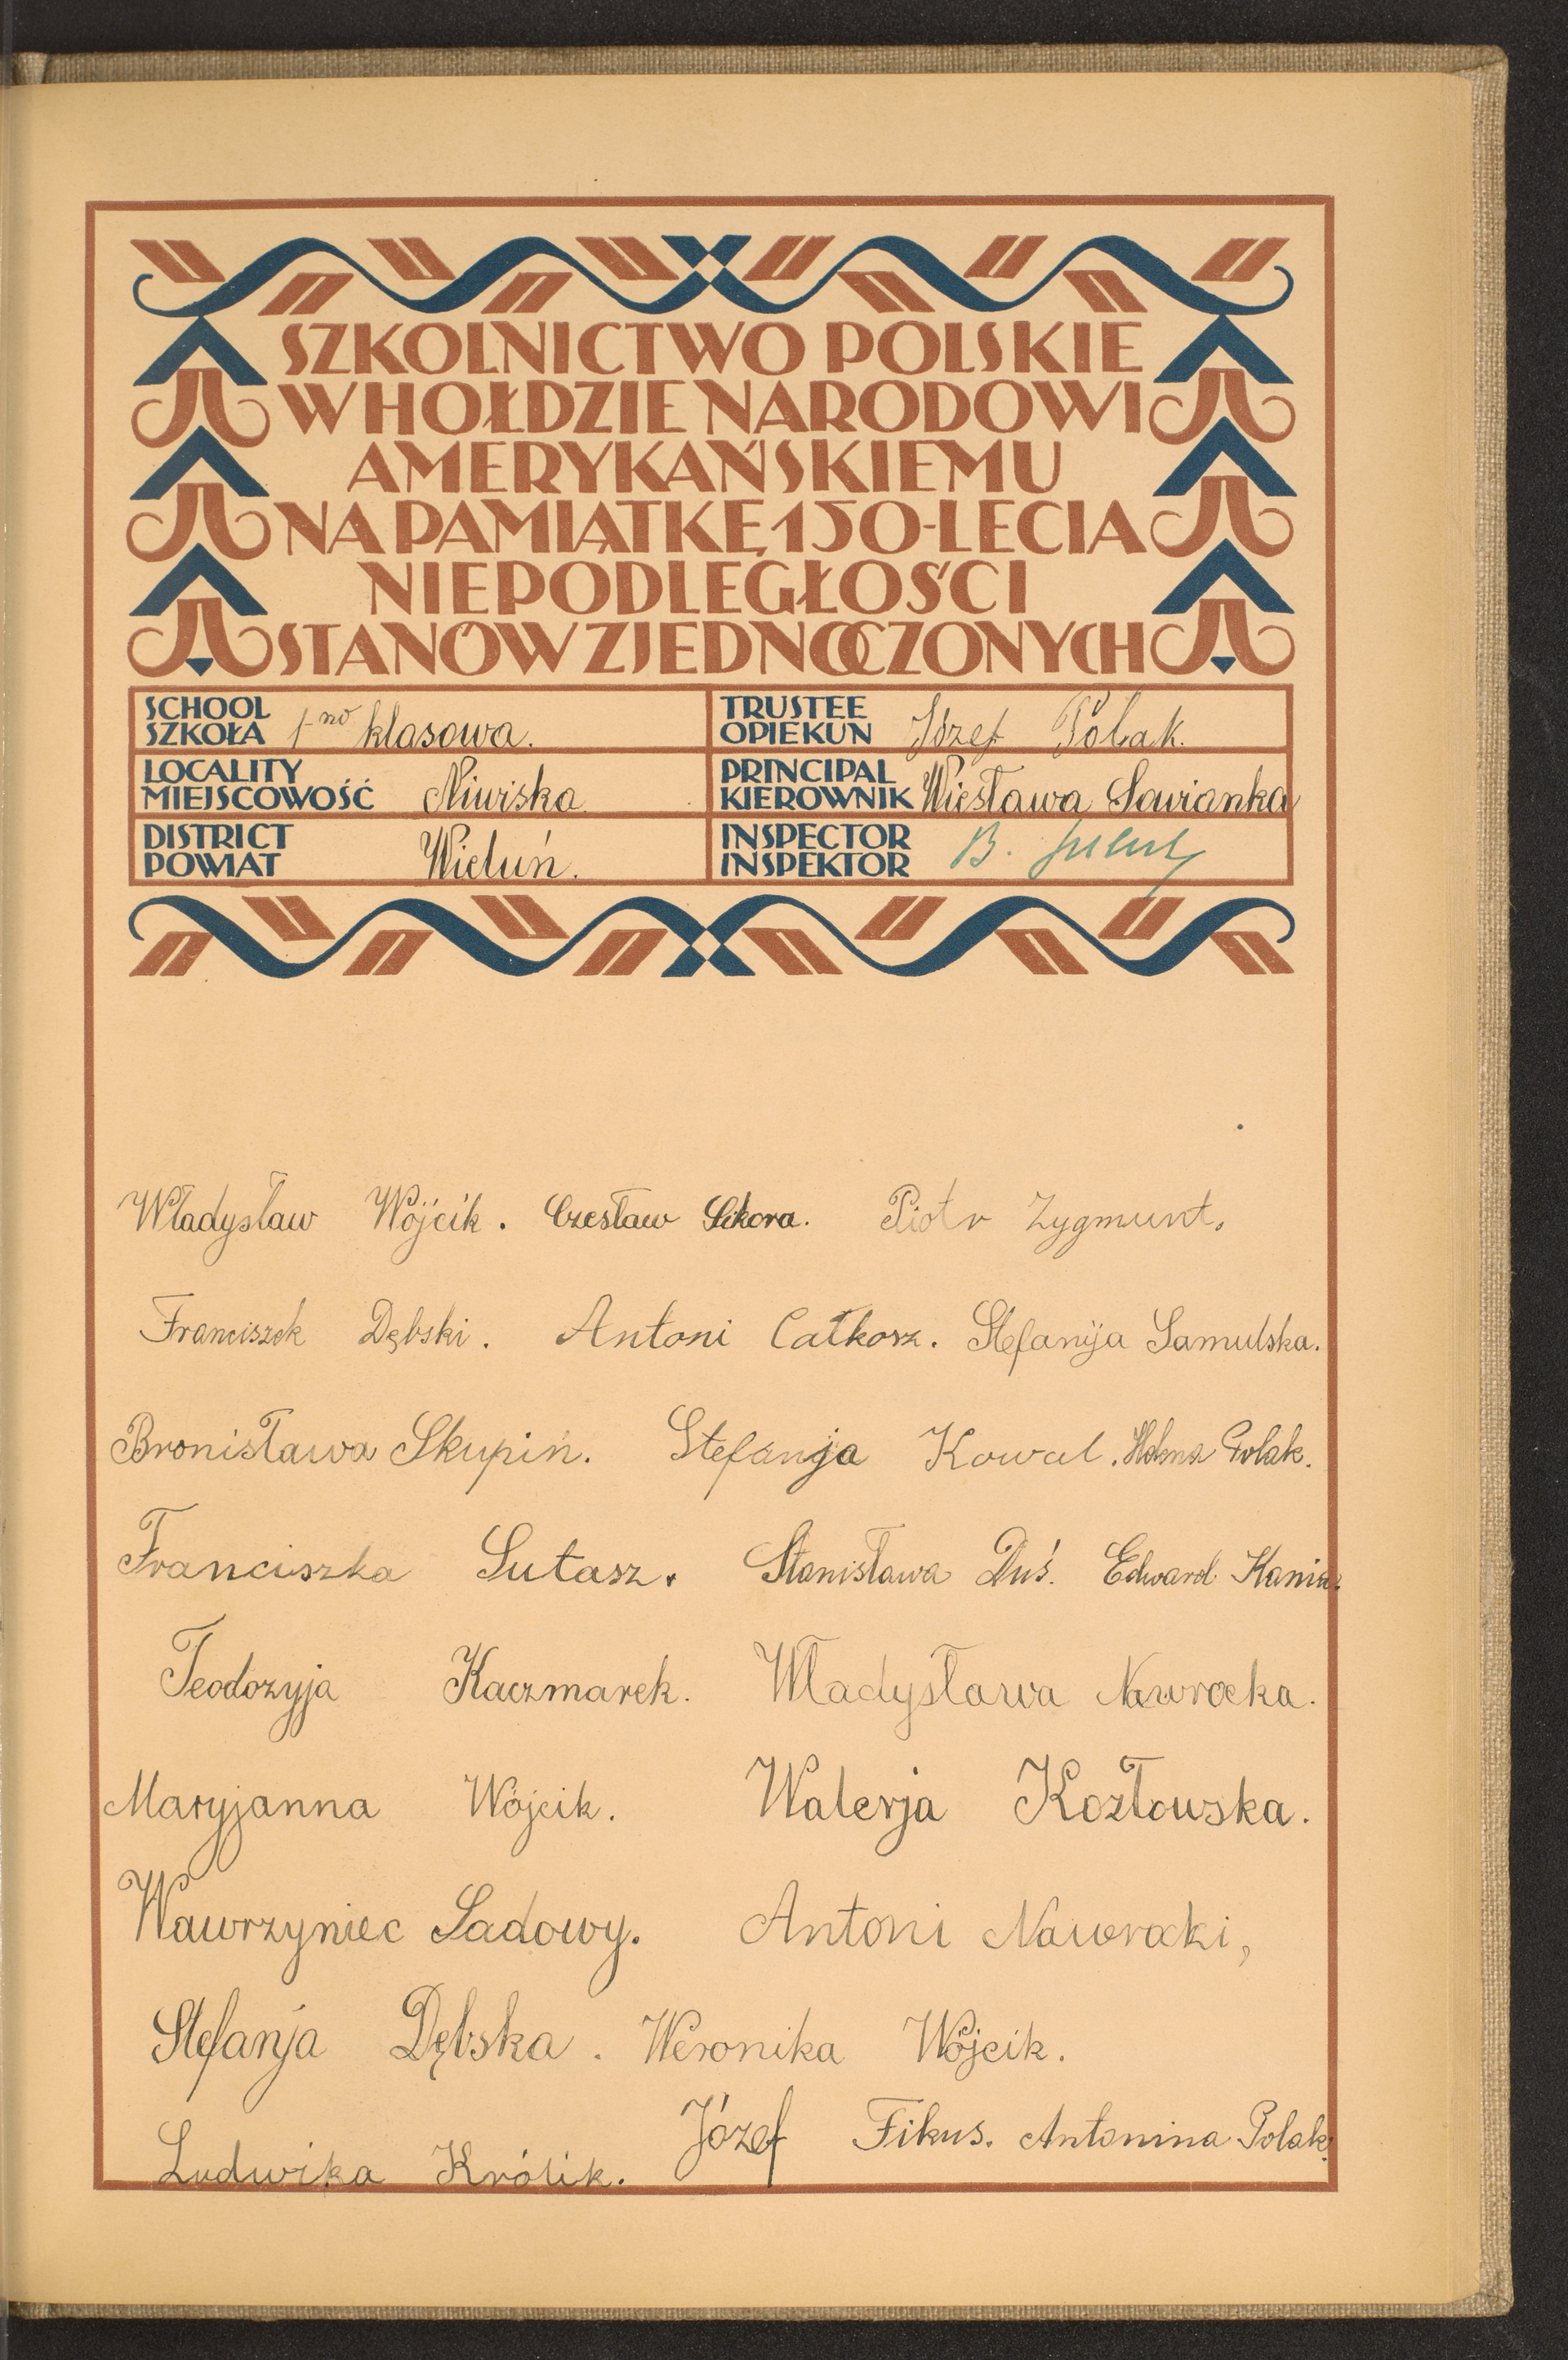 SZKOLNICTWO POLSKIE
W HOŁDZIE NARODOWI
AMERYKAŃSKIEMU
NA PAMIĄTKĘ 150-LECIA
NIEPODLEGŁOŚCI
STANÓW ZJEDNOCZONYCH
SCHOOL
SZKOŁA 1-no klasowa.
TRUSTEE
OPIEKUN Józef Polak.
LOCALITY
MIEJSCOWOŚĆ Niwiska
PRINCIPAL
KIEROWNIK Wiesława Sawianka
DISTRICT
POWIAT Wieluń.
INSPECTOR
INSPEKTOR B.
Władysław Wójcik. Czesław Sikora. Piotr Zygmunt.
Franciszek Dębski. Antoni Całkosz. Stefanija Samulska.
Bronisława Skupiń. Stefanja Kowal. Helena Polak.
Franciszka Sutasz. Stanisława Duś. Edward Kania.
Teodozyja Kaczmarek. Władysława Nawrocka.
Maryjanna Wójcik. Walerja Kozłowska.
Wawrzyniec Sadowy. Antoni Nawrocki,
Stefanja Dębska. Weronika Wójcik.
Ludwika Królik. Józef Fikus. Antonina Polak.